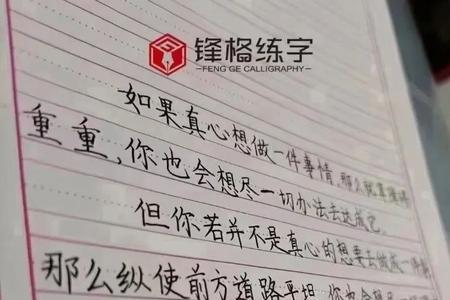 锋格练字
FENG GE CALLIGRAPHY
如果真心想做一件事情,那么就算障碍
重重,你也会想尽一切办法去达成它。
但你若并不是真心的想要去做成一件
那么纵使前方道路平坦,你也会想